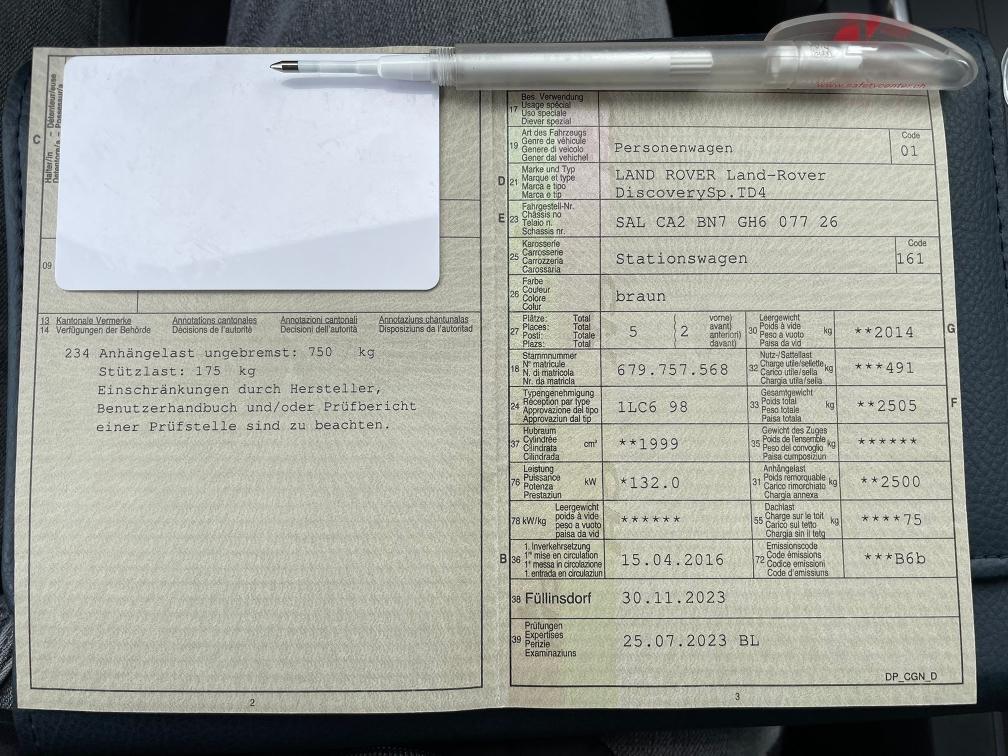 www.safetycenter.ch
C
Halter/in – Détenteur/euse
Detentore/a – Possessur/a
09
13 Kantonale Vermerke Annotations cantonales Annotazioni cantonali Annotaziuns chantunalas
14 Verfügungen der Behörde Décisions de l'autorité Decisioni dell'autorità Disposiziuns da l'autoritad
234 Anhängelast ungebremst: 750 kg
Stützlast: 175 kg
Einschränkungen durch Hersteller,
Benutzerhandbuch und/oder Prüfbericht
einer Prüfstelle sind zu beachten.
2
17
Bes. Verwendung
Usage spécial
Uso speciale
Diever spezial
19
Art des Fahrzeugs
Genre de véhicule
Genere di veicolo
Gener dal vehichel
Personenwagen
Code
01
D 21
Marke und Typ
Marque et type
Marca e tipo
Marca e tip
LAND ROVER Land-Rover
DiscoverySp.TD4
E 23
Fahrgestell-Nr.
Châssis no
Telaio n.
Schassis nr.
SAL CA2 BN7 GH6 077 26
25
Karosserie
Carrosserie
Carrozzeria
Carossaria
Stationswagen
Code
161
26
Farbe
Couleur
Colore
Colur
braun
27
Plätze: Total
Places: Total
Posti: Totale
Plazs: Total
5 (2
vorne)
avant)
anteriori)
davant)
30
Leergewicht
Poids à vide
Peso a vuoto
Paisa da vid
kg
**2014
G
18
Stammnummer
N° matricule
N. di matricola
Nr. da matricla
679.757.568
32
Nutz-/Sattellast
Charge utile/sellette
Carico utile/sella
Chargia utila/sella
kg
***491
24
Typengenehmigung
Réception par type
Approvazione del tipo
Approvaziun dal tip
1LC6 98
33
Gesamtgewicht
Poids total
Peso totale
Paisa totala
kg
**2505
F
37
Hubraum
Cylindrée
Cilindrata
Cilindrada
cm³
**1999
35
Gewicht des Zuges
Poids de l'ensemble
Peso del convoglio
Paisa cumposiziun
kg
******
76
Leistung
Puissance
Potenza
Prestaziun
kW
*132.0
31
Anhängelast
Poids remorquable
Carico rimorchiato
Chargia annexa
kg
**2500
78 kW/kg
Leergewicht
poids à vide
peso a vuoto
paisa da vid
******
55
Dachlast
Charge sur le toit
Carico sul tetto
Chargia sin il tetg
kg
****75
B 36
1. Inverkehrsetzung
1re mise en circulation
1a messa in circolazione
1. entrada en circulaziun
15.04.2016
72
Emissionscode
Code émissions
Codice emissioni
Code d'emissiuns
***B6b
38 Füllinsdorf 30.11.2023
39
Prüfungen
Expertises
Perizie
Examinaziuns
25.07.2023 BL
DP_CGN_D
3